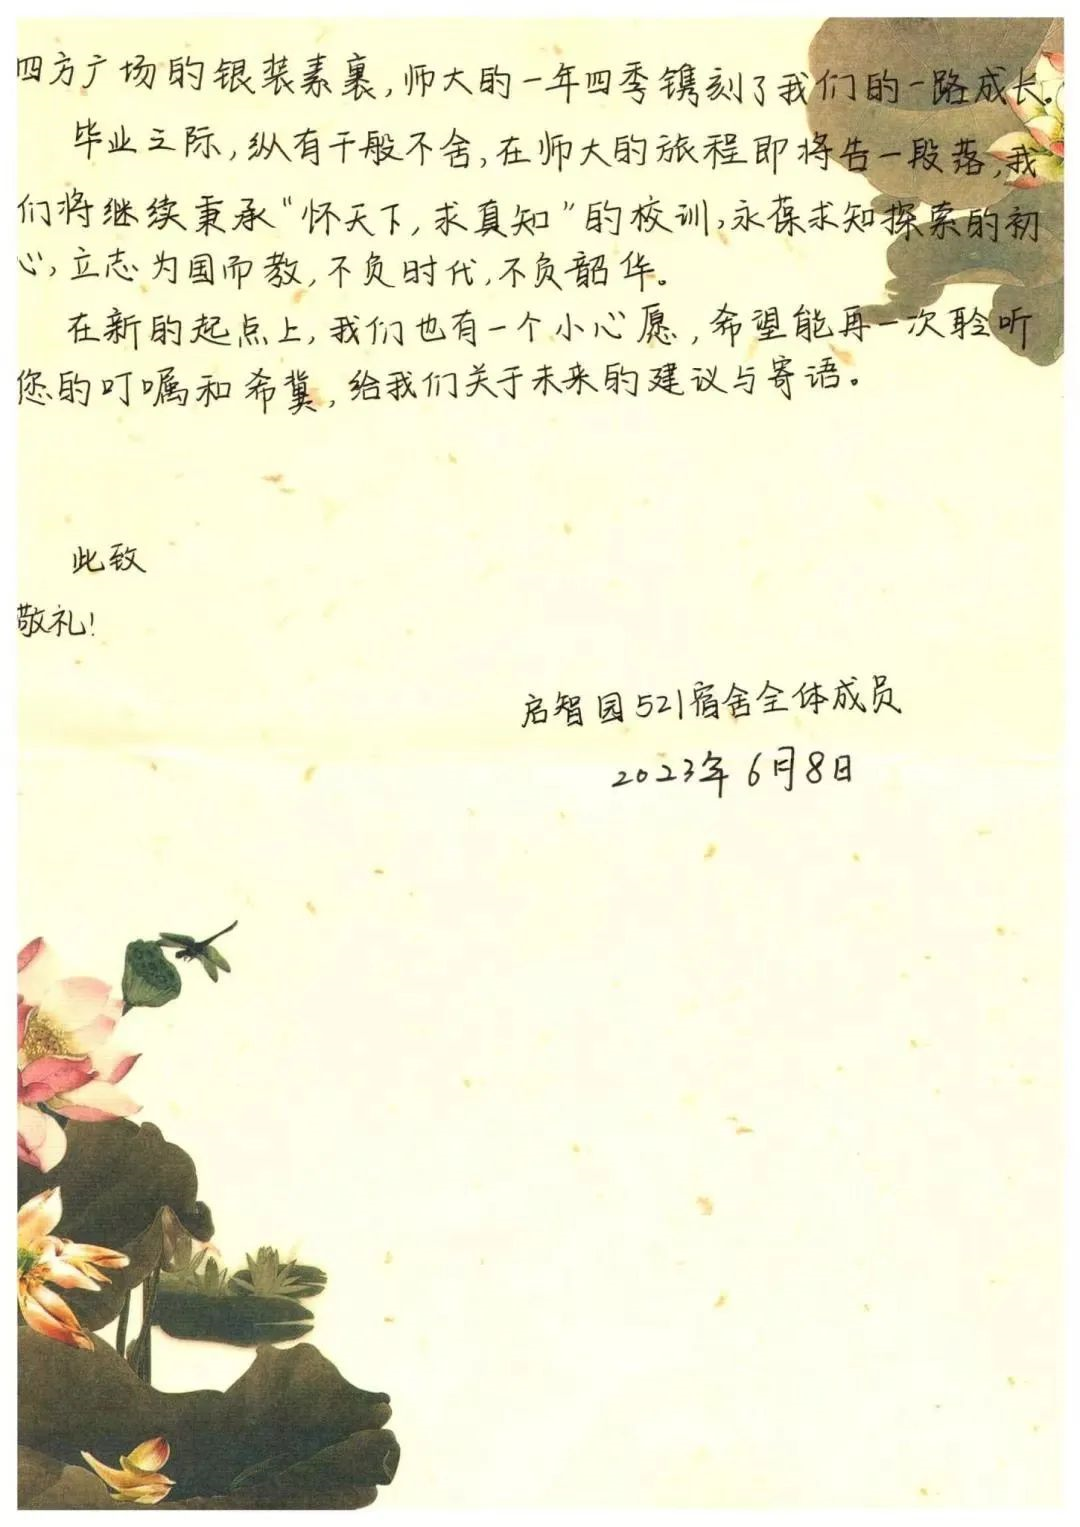 四方广场的银装素裹,师大的一年四季镌刻了我们的一路成长。
毕业之际,纵有千般不舍,在师大的旅程即将告一段落,我
们将继续秉承“怀天下,求真知”的校训,永葆求知探索的初
心,立志为国而教,不负时代,不负韶华。
在新的起点上,我们也有一个小心愿,希望能再一次聆听
您的叮嘱和希冀,给我们关于未来的建议与寄语。
此致
敬礼!
启智园521宿舍全体成员
2023年6月8日